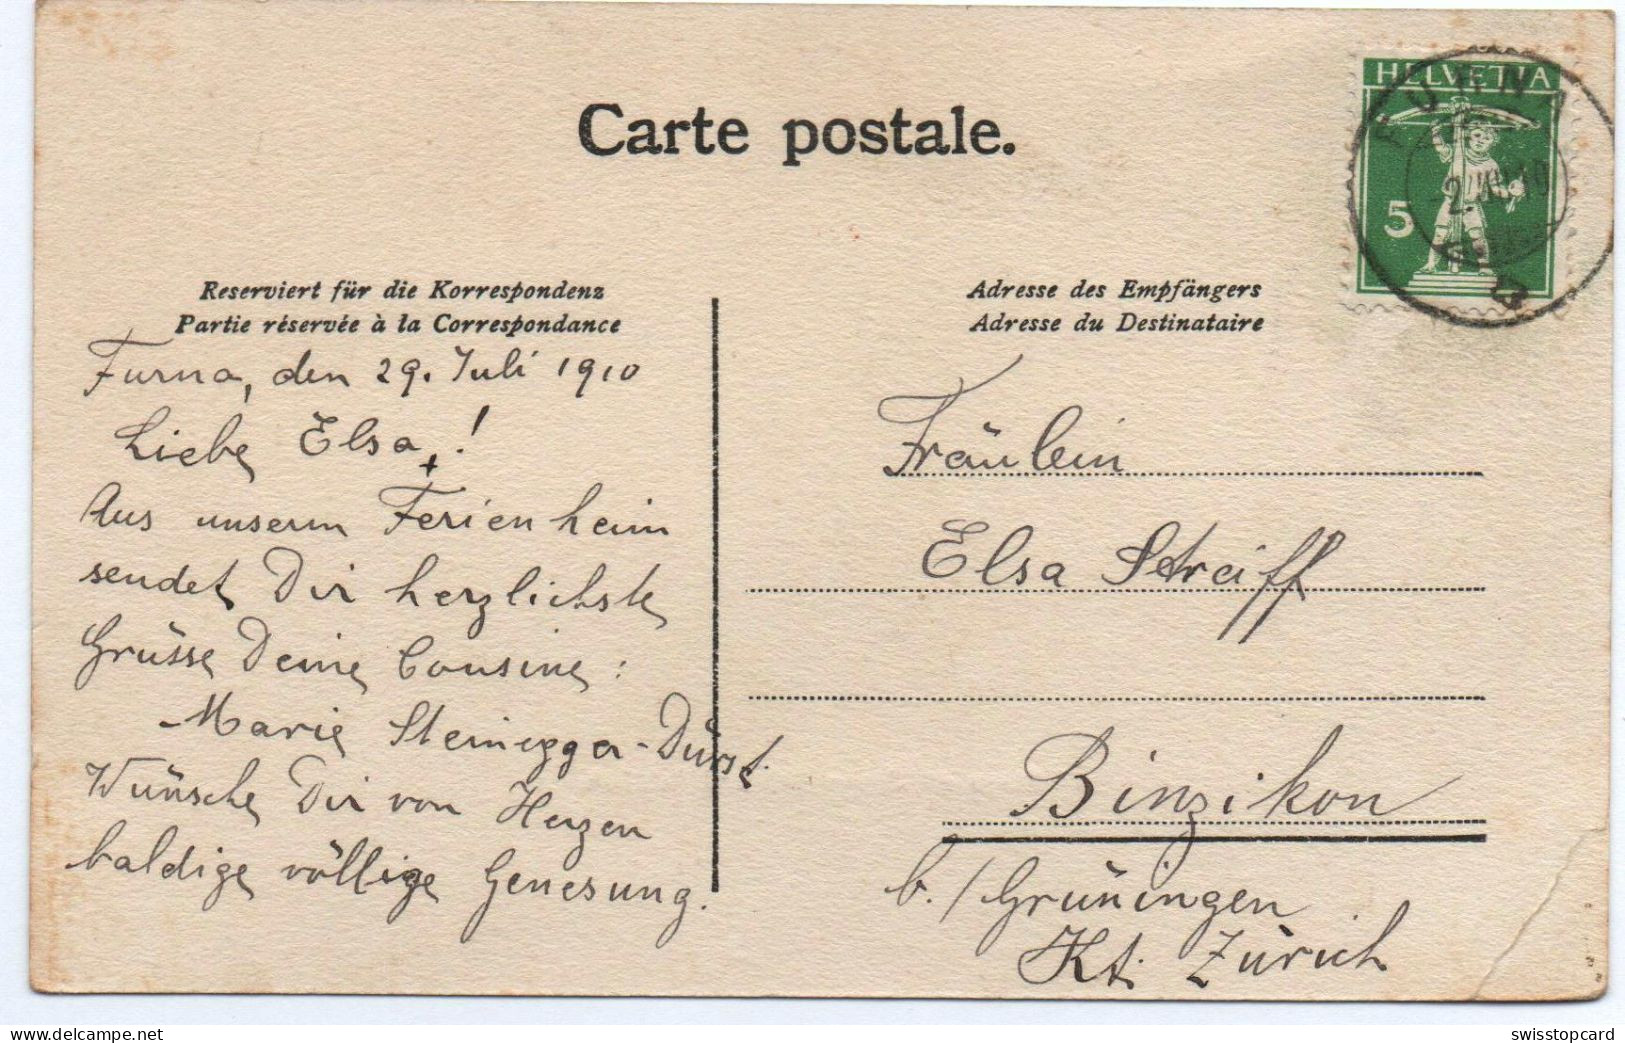 Carte postale.
HELVETIA
5
FURNA
Reserviert für die Korrespondenz
Partie réservée à la Correspondance
Furna, den 29. Juli 1910
Liebe Elsa!
Aus unserm Ferienheim
sendet Dir herzlichste
Grüsse Deine Cousine:
Marie Steinegger-Dürst.
Wünsche Dir von Herzen
baldige völlige Genesung.
Adresse des Empfängers
Adresse du Destinataire
Fräulein
Elsa Streiff
Binzikon
b./Grüningen
Kt. Zürich
delcampe.net
swisstopcard